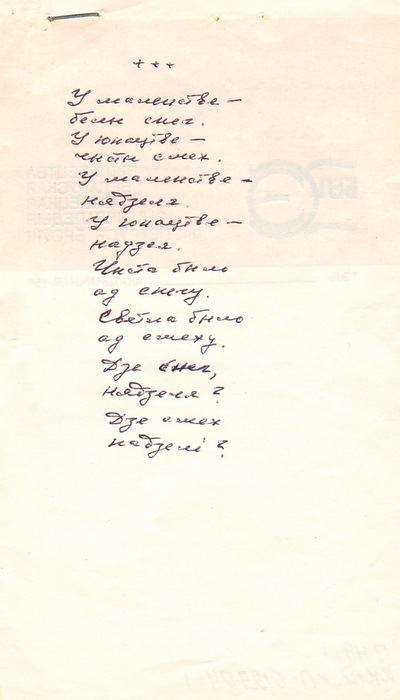 +++
У маленстве –
белы снег.
У юнацтве –
чысты смех.
У маленстве –
нядзеля.
У юнацтве –
надзея.
Чыста было
ад снегу.
Светла было
ад смеху.
Дзе снег,
нядзеля?
Дзе смех
надзеі?